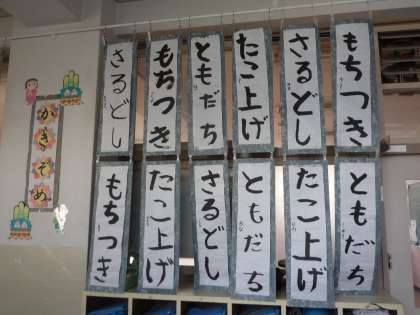 もちつき
さるどし
たこ上げ
ともだち
もちつき
さるどし
ともだち
たこ上げ
ともだち
さるどし
たこ上げ
もちつき
かきぞめ